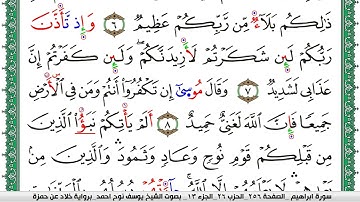 ذَٰلِكُم بَلَآءٌ مِّن رَّبِّكُمْ عَظِيمٌ ٦ وَإِذ تَّأَذَّنَ
رَبُّكُمْ لَئِن شَكَرْتُمْ لَأَزِيدَنَّكُمْ وَلَئِن كَفَرْتُمْ إِنَّ
عَذَابِي لَشَدِيدٌ ٧ وَقَالَ مُوسَىٰ إِن تَكْفُرُوٓا۟ أَنتُمْ وَمَن فِي ٱلْأَرْضِ
جَمِيعًا فَإِنَّ ٱللَّهَ لَغَنِيٌّ حَمِيدٌ ٨ أَلَمْ يَأْتِكُمْ نَبَؤُا۟ ٱلَّذِينَ
مِن قَبْلِكُمْ قَوْمِ نُوحٍ وَعَادٍ وَثَمُودَ وَٱلَّذِينَ مِنۢ
سورة ابراهيم _ الصفحة ٢٥٦ _ الحزب ٢٦ _ الجزء ١٣ _ بصوت الشيخ يوسف نوح احمد _ برواية خلاد عن حمزة